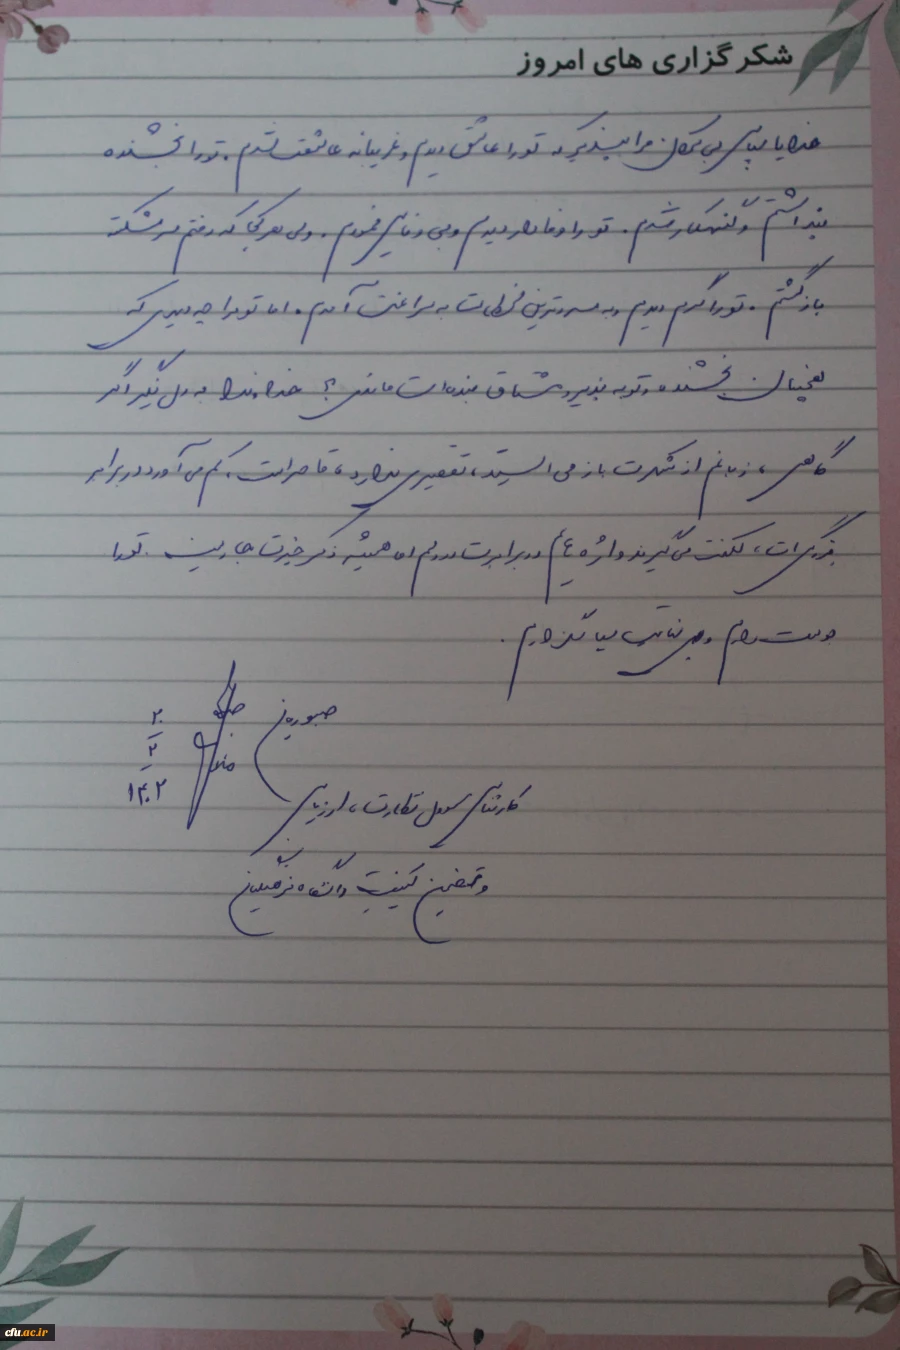 شکرگزاری های امروز
خدایا سپاس بی کران مرا بپذیر که تو را عاشق دیدم و غریبانه عاشقت شدم. تو را بخشنده
پنداشتم و گنهکار شدم. تو را وفادار دیدم و بی وفایی نمودم. ولی هر کجا که رفتم سرشکسته
بازگشتم. تو را گرم دیدم و در سردترین لحظات به سراغت آمدم. اما تو مرا چه دیدی که
همچنان بخشنده و توبه پذیر و مشتاق بنده ات ماندی؟ خداوندا به دل نگیر اگر
گاهی، زبانم از شکرت باز می ایستد، تقصیری ندارد، قاصر است، کم می آورد در برابر
بزرگی ات، لکنت می گیرند واژه هایم در برابرت در دلم اما همیشه ذکر خیرت جاریست. تو را
دوست دارم و بی نهایت سپاسگزارم.
صبوریان
۲۰
۲
۱۴۰۲
کارشناس مسول نظارت، ارزیابی
و تضمین کیفیت دانشگاه فرهنگیان
cfu.ac.ir